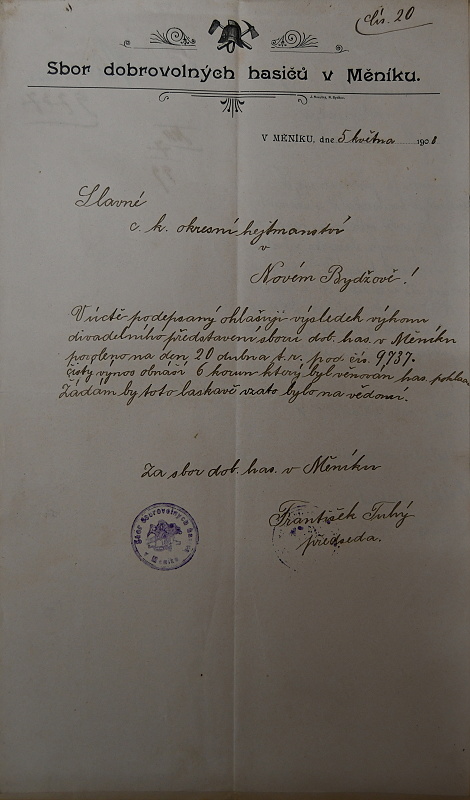 čís. 20
Sbor dobrovolných hasičů v Měníku.
V MĚNÍKU, dne 5 května 1908
Slavné
c. k. okresní hejtmanství
v
Novém Bydžově!
V úctě podepsaný ohlašuji výsledek výkonu
divadelního představení sboru dob. has. v Měníku
povoleno na den 20 dubna t. r. pod čís. 9737.
čistý výnos obnáší 6 korun který byl věnován has. poklad
Žádám by toto laskavě vzato bylo na vědomí.
Za sbor dob. has. v Měníku
František Tuhý
předseda.
Sbor dobrovolných hasičů
v Měníku